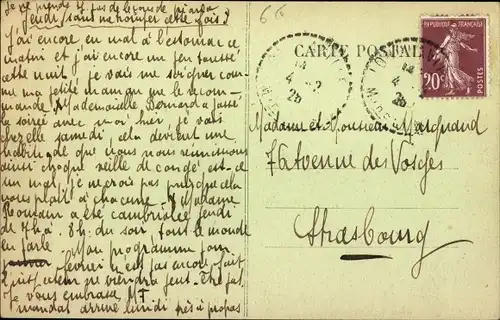 jeudi, sans me tromper cette fois ?
J'ai encore eu mal à l'estomac ce
matin et j'ai encore un peu toussé
cette nuit. Je vais me soigner com-
me ma petite maman me le recom-
mande. Mademoiselle Bernard a passé
la soirée avec moi hier, je vais
chez elle samedi, cela devient une
habitude que nous nous réunissions
ainsi chaque veille de congé. C'est
un mal, je ne crois pas puisque cela
nous plaît à chacune. Madame
Romain a été cambriolée jeudi
de 7h à 8h. du soir, tout le monde
en parle. Mon programme pour
février n'est pas encore fait
Je vous embrasse MT
mandat arrivé lundi très à propos
CARTE POSTALE
4 -2
26
RÉPUBLIQUE FRANÇAISE
20c
POSTES
4 -2
26
Madame et Monsieur Marchand
76 Avenue des Vosges
Strasbourg